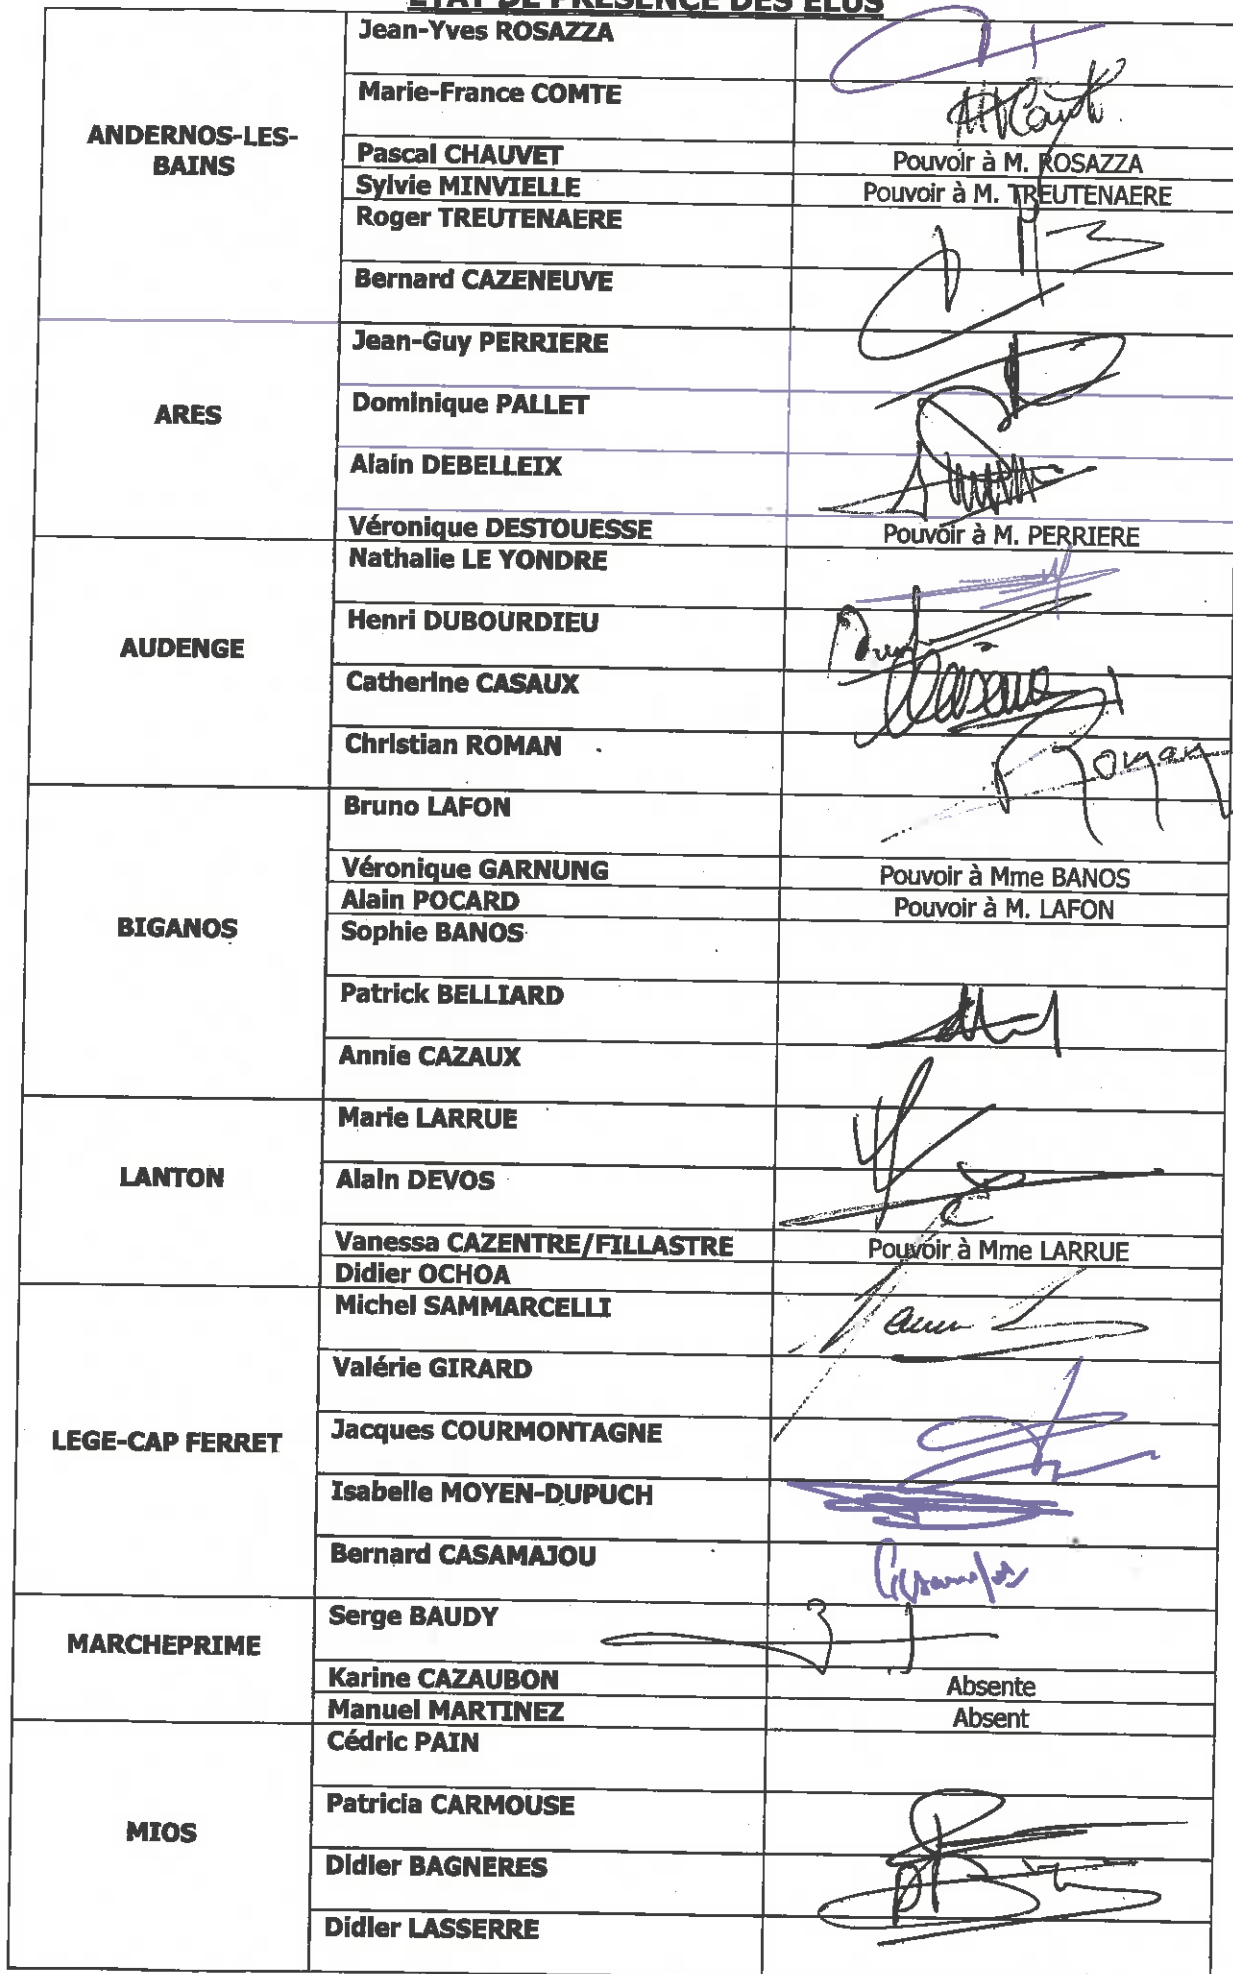 ETAT DE PRESENCE DES ELUS
ANDERNOS-LES-
BAINS
Jean-Yves ROSAZZA
Marie-France COMTE
Pascal CHAUVET Pouvoir à M. ROSAZZA
Sylvie MINVIELLE Pouvoir à M. TREUTENAERE
Roger TREUTENAERE
Bernard CAZENEUVE
ARES
Jean-Guy PERRIERE
Dominique PALLET
Alain DEBELLEIX
Véronique DESTOUESSE Pouvoir à M. PERRIERE
AUDENGE
Nathalie LE YONDRE
Henri DUBOURDIEU
Catherine CASAUX
Christian ROMAN
Roman
BIGANOS
Bruno LAFON
Véronique GARNUNG Pouvoir à Mme BANOS
Alain POCARD Pouvoir à M. LAFON
Sophie BANOS
Patrick BELLIARD
Annie CAZAUX
LANTON
Marie LARRUE
Alain DEVOS
Vanessa CAZENTRE/FILLASTRE Pouvoir à Mme LARRUE
Didier OCHOA
LEGE-CAP FERRET
Michel SAMMARCELLI
Valérie GIRARD
Jacques COURMONTAGNE
Isabelle MOYEN-DUPUCH
Bernard CASAMAJOU
MARCHEPRIME
Serge BAUDY
Karine CAZAUBON Absente
Manuel MARTINEZ Absent
MIOS
Cédric PAIN
Patricia CARMOUSE
Didier BAGNERES
Didier LASSERRE